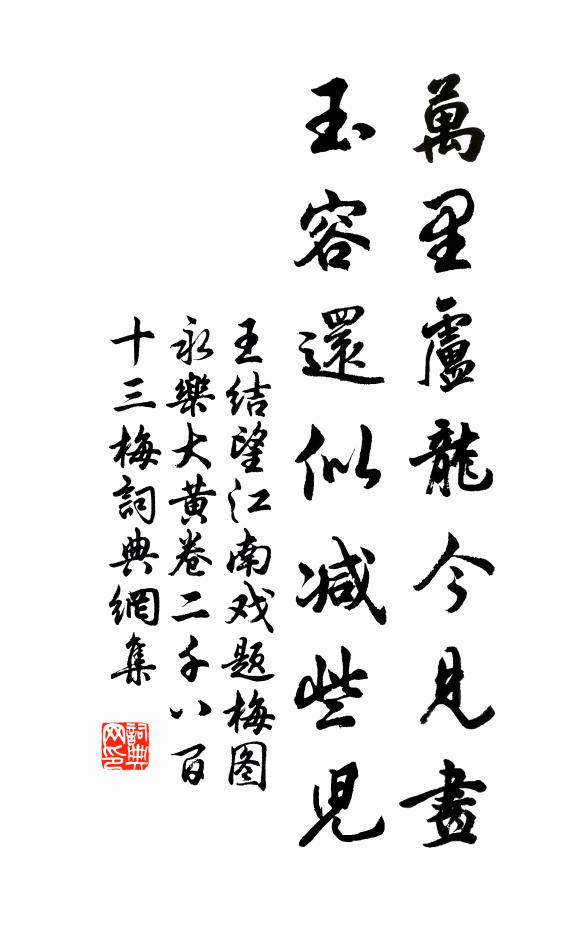 萬里盧龍今見畫
玉容還似减些児
王结望江南戏题梅图
永樂大黄卷二千八百
十三梅詞典網集
詞典网印